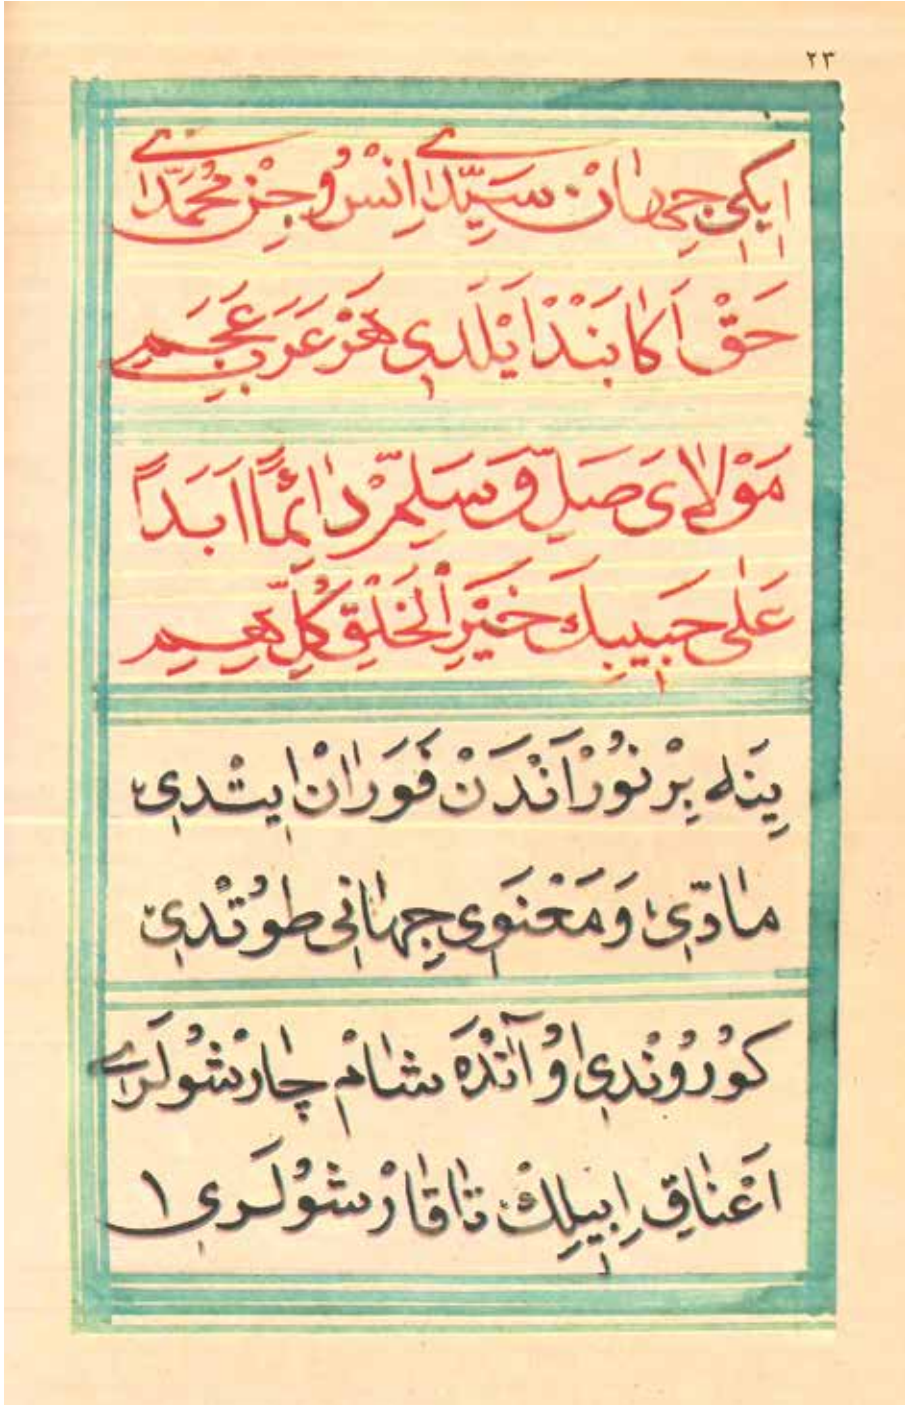 ٢٣
ایکی جهان سَیِّدی اِنْسُ و جِنْ مُحَمَّدی
حَقْ اَکا بَنْدْ اَیْلَدی هَرْ عَرَبِ عَجَمِ
مَوْلَایَ صَلِّ وَ سَلِّمْ دَائِمًا اَبَدًا
عَلٰی حَبِیبِكَ خَیْرِ الْخَلْقِ کُلِّهِمِ
یِنَه بِرْ نُورْ اَنْدَنْ فَوَرَانْ ایتْدی
مادّی وَ مَعْنَوی جِهانی طوُتْدی
کوُروُنْدی اوُ آنْدَه شامْ چارْشولَری
اَعْناقِ اِبِیلِكْ تاقارْشوُلَری ١